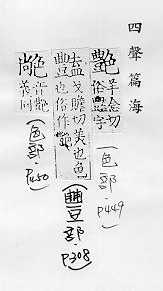 四聲篇海
艷 羊念切
俗豔字
(色部 P449)
豔 弋贍切美也色
豐也俗作艷
(豐豆部 P308)
音都
(色部 P450)